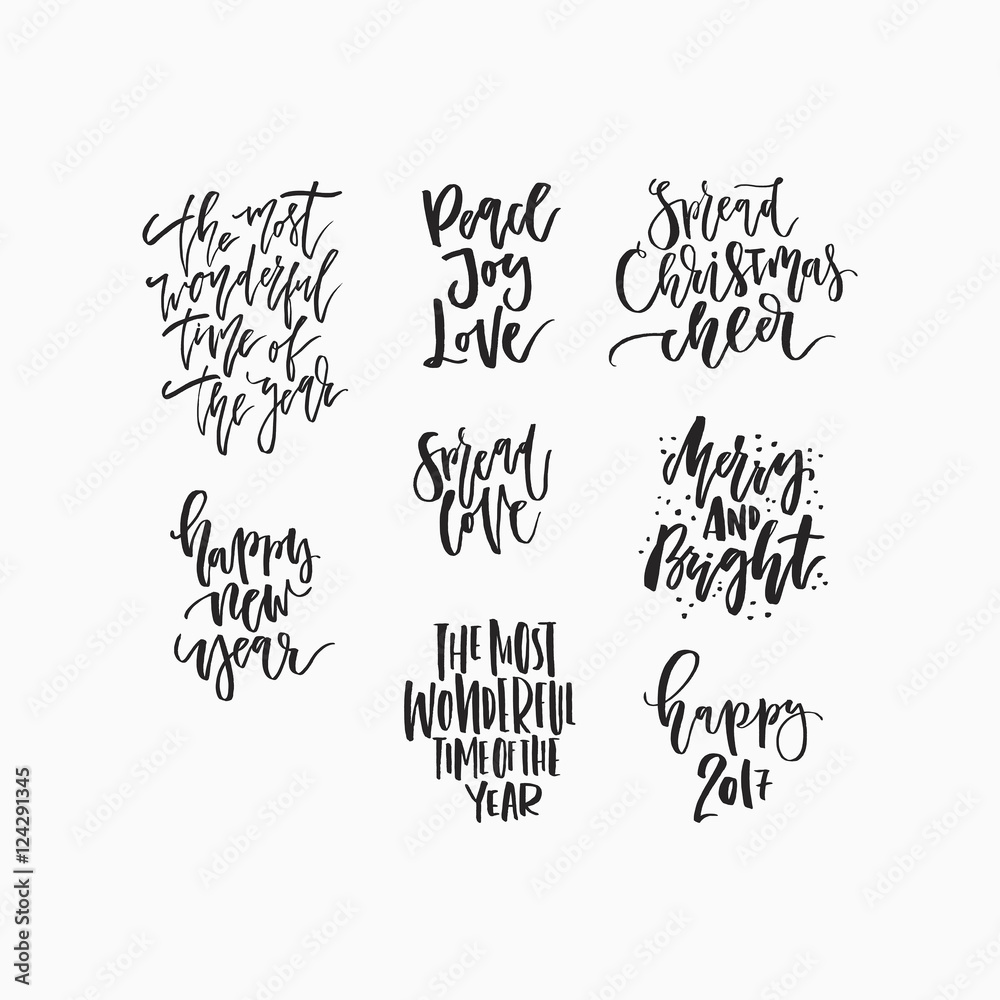 the most
wonderful
time of
the year
Peace
Joy
Love
Spread
Christmas
cheer
Spread
love
Merry
AND
Bright
happy
new
year
THE MOST
WONDERFUL
TIME OF THE
YEAR
happy
2017
Adobe Stock | #124291345